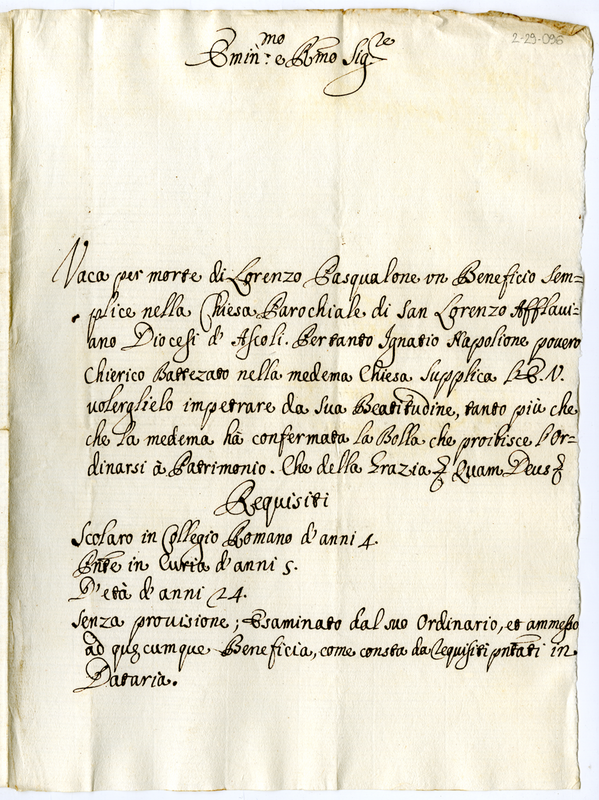 2-29-096
Emin.mo e R.mo Sig.re
Vaca per morte di Lorenzo Pasqualone vn Beneficio sem=
plice nella Chiesa Parochiale di San Lorenzo Afflaui=
ano Diocesi d' Ascoli. Pertanto Ignatio Napolione pouero
Chierico Battezato nella medema Chiesa supplica V.
uolerglielo impetrare da sua Beatitudine, tanto più che
che la medema hà confermata la Bolla che proibisce l'Or=
dinarsi à Patrimonio. Che della Grazia Quam Deus
Requisiti
Scolaro in Collegio Romano d'anni 4.
Pnte in Curia d'anni 5.
D'età d'anni 24.
Senza prouisione; Esaminato dal suo Ordinario, et ammesso
ad quęcumque Beneficia, come consta da requisiti pntati in
Dataria.